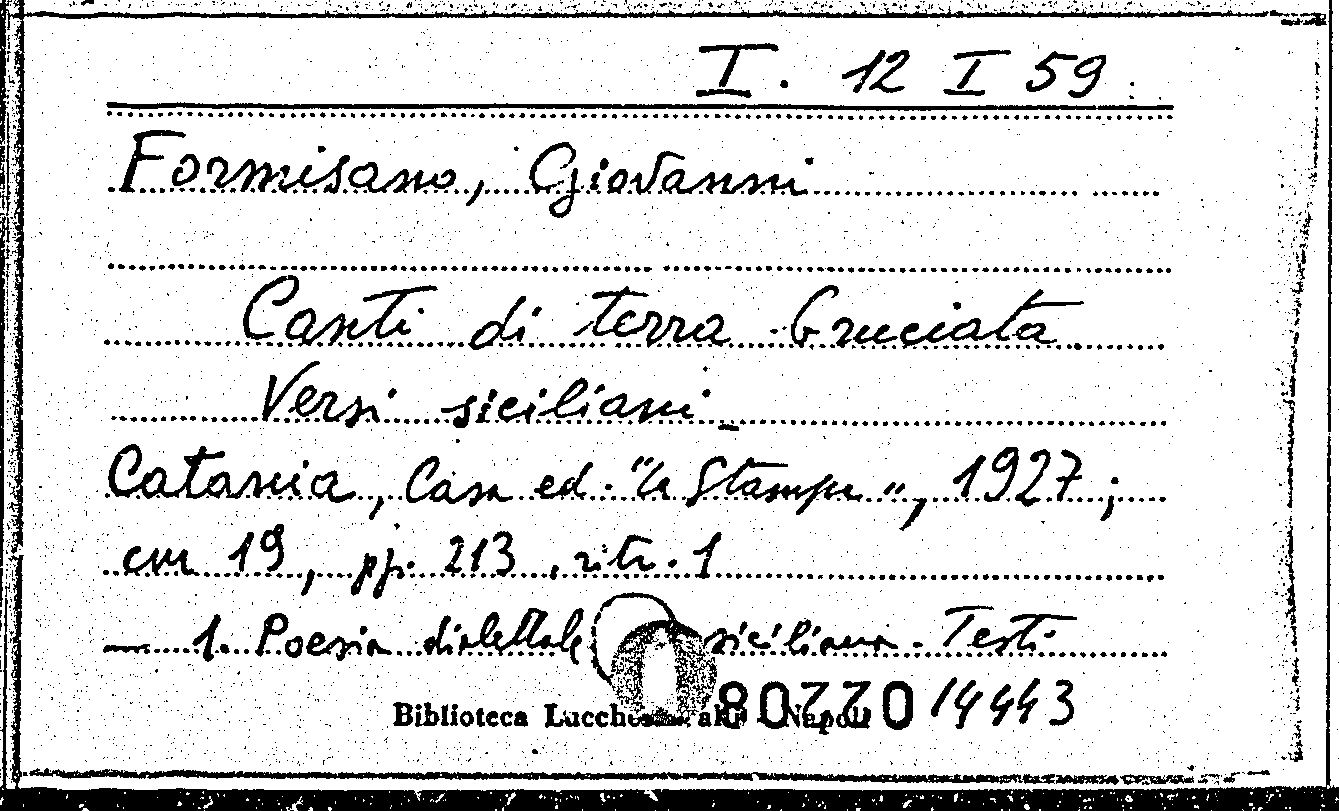 I. 12 I 59
Formisano, Giovanni
Canti di terra bruciata
Versi siciliani
Catania, Casa ed. "La Stampa", 1927;
cm 19, pp. 213, ritr. 1
1. Poesia dialettale siciliana. Testi
Biblioteca Napoli 14443